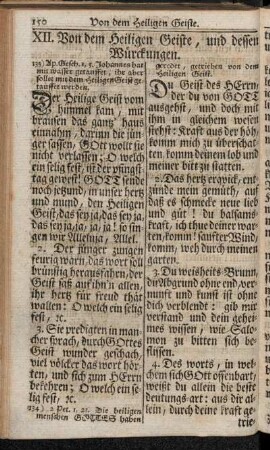 150 Von dem Heiligen Geiste.
XII. Von dem Heiligen Geiste, und dessen
Würckungen.
133) Ap. Gesch. 1, 5. Johannes hat
mit wasser getauffet, ihr aber
sollet mit dem Heiligen Geist ge-
tauffet werden.
Der Heilige Geist vom
himmel kam, mit
brausen das gantz haus
einnahm, darinn die jün
ger sassen, GOtt wollt sie
nicht verlassen; O welch
ein selig fest, ist der pfingst-
tag gewest! GOTT sende
noch jetzund, in unser hertz
und mund, den Heiligen
Geist, das sey ja, das sey ja,
das sey ja, ja, ja, ja! so sin-
gen wir Alleluja, Allel.
2. Der jünger zungen
feurig warn, das wort so
brünstig herausfahrn, der
Geist saß auf ihn'n allen,
ihr hertz für freud thät
wallen: O welch ein selig
fest, ꝛc.
3. Sie predigten in man-
cher sprach, durch GOttes
Geist wunder geschach,
viel völcker das wort hör-
ten, und sich zum HErrn
bekehrten; O welch ein se-
lig fest, ꝛc.
134) 2 Pet. 1, 21. Die heiligen
menschen GOTTES haben
geredet, getrieben von dem
Heiligen Geist.
Du Geist des HErrn,
der du von GOTT
ausgehst, und doch mit
ihm in gleichem wesen
stehst: Kraft aus der höh,
komm mich zu überschat-
ten, komm deinem lob und
meiner bitt zu statten.
2. Das hertz erweich, ent-
zünde mein gemüth, auf
daß es schmecke neue lieb
und güt! du balsams
kraft, ich thue deiner war-
ten, komm! sanfter Wind/
komm, weh durch meinen
garten.
3. Du weisheits Brunn,
du Abgrund ohne end, ver-
nunft und kunst ist ohne
dich verblendt: gib mir
verstand und dein gehei-
mes wissen, wie Salo-
mon zu bitten sich be-
flissen.
4. Des worts, in wel-
chem sich GOtt offenbart,
weißt du allein die beste
deutungs-art: aus dir al-
lein, durch deine kraft ge-
trie-